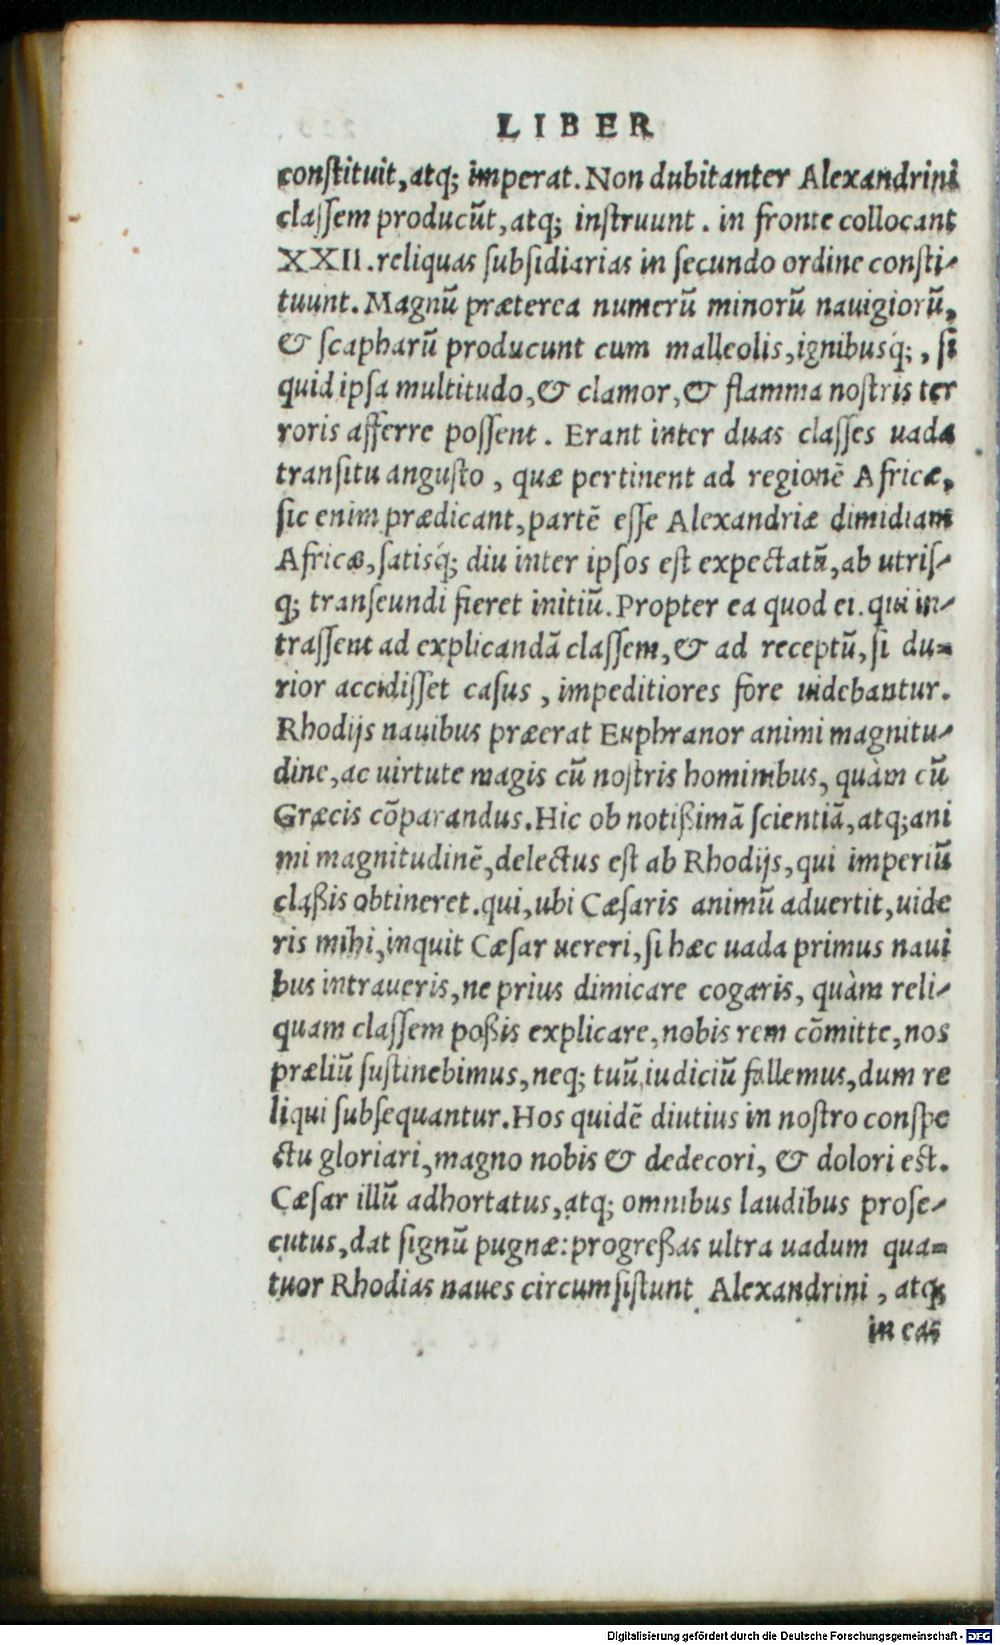 LIBER
conſtituit, atq; imperat. Non dubitanter Alexandrini
claſſem producūt, atq; inſtruunt. in fronte collocant
XXII. reliquas ſubſidiarias in ſecundo ordine conſti-
tuunt. Magnū præterea numerū minorū nauigiorū,
& ſcapharū producunt cum malleolis, ignibusq́;, ſi
quid ipſa multitudo, & clamor, & flamma noſtris ter
roris afferre poſſent. Erant inter duas claſſes uada
tranſitu anguſto, quæ pertinent ad regionē Africæ,
ſic enim prædicant, partē eſſe Alexandriæ dimidiam
Africæ, ſatisq́; diu inter ipſos eſt expectatū, ab utriſ-
q; tranſeundi fieret initiū. Propter ea quod ei. qui in-
traſſent ad explicandā claſſem, & ad receptū, ſi du-
rior accidiſſet caſus, impeditiores fore uidebantur.
Rhodijs nauibus præerat Euphranor animi magnitu-
dine, ac uirtute magis cū noſtris hominibus, quàm cū
Græcis cōparandus. Hic ob notißimā ſcientiā, atq; ani
mi magnitudinē, delectus eſt ab Rhodijs, qui imperiū
claßis obtineret. qui, ubi Cæſaris animū aduertit, uide
ris mihi, inquit Cæſar uereri, ſi hæc uada primus naui
bus intraueris, ne prius dimicare cogaris, quàm reli-
quam claſſem poßis explicare, nobis rem cōmitte, nos
præliū ſuſtinebimus, neq; tuū iudiciū fallemus, dum re
liqui ſubſequantur. Hos quidē diutius in noſtro conſpe
ctu gloriari, magno nobis & dedecori, & dolori eſt.
Cæſar illū adhortatus, atq; omnibus laudibus proſe-
cutus, dat ſignū pugnæ: progreßas ultra uadum qua-
tuor Rhodias naues circumſiſtunt Alexandrini, atq;
in eas
Digitalisierung gefördert durch die Deutsche Forschungsgemeinschaft - DFG